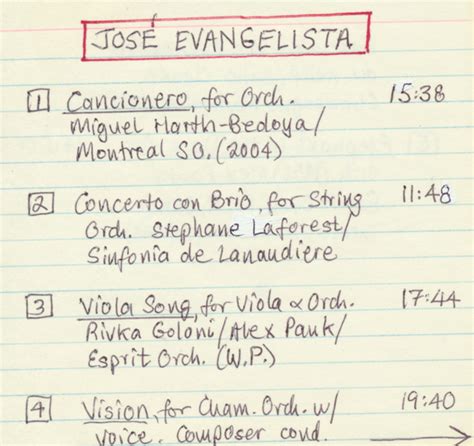 JOSÉ EVANGELISTA
1 Cancionero, for Orch. 15:38
Miguel Harth-Bedoya/
Montreal SO. (2004)
2 Concerto con Brio, for String 11:48
Orch. Stephane Laforest/
Sinfonia de Lanaudiere
3 Viola Song, for Viola & Orch. 17:44
Rivka Goloni/Alex Pauk/
Esprit Orch. (W.P.)
4 Vision, for Cham. Orch. w/ 19:40
voice. Composer cond.